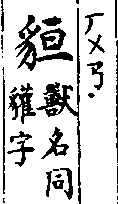 ㄏㄨㄢ.
貆
獸名同
貛字